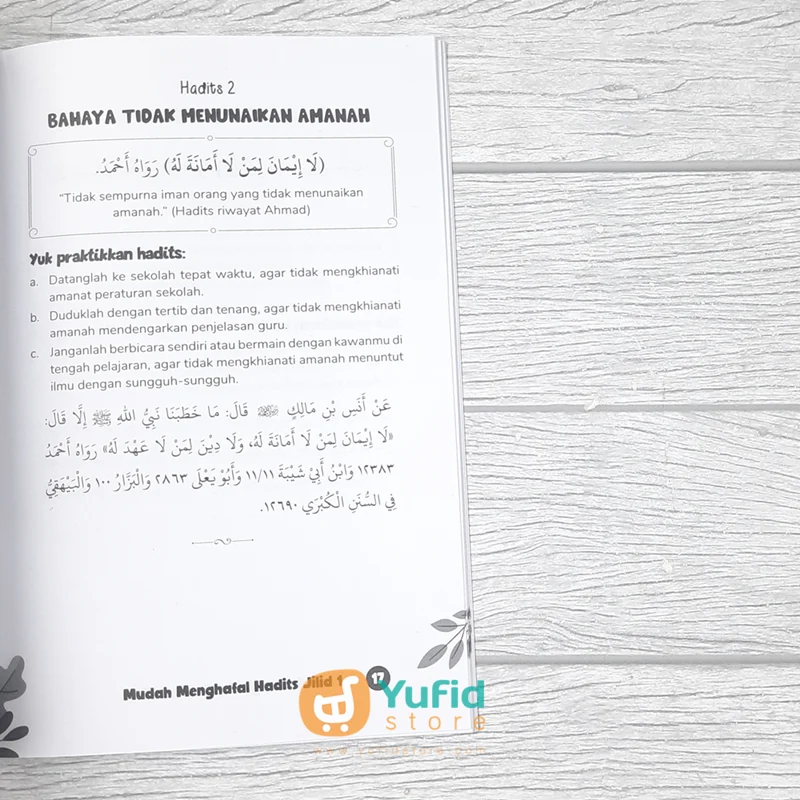 Hadits 2
BAHAYA TIDAK MENUNAIKAN AMANAH
(لَا إِيْمَانَ لِمَنْ لَا أَمَانَةَ لَهُ) رَوَاهُ أَحْمَدُ.
“Tidak sempurna iman orang yang tidak menunaikan
amanah.” (Hadits riwayat Ahmad)
Yuk praktikkan hadits:
a. Datanglah ke sekolah tepat waktu, agar tidak mengkhianati
amanat peraturan sekolah.
b. Duduklah dengan tertib dan tenang, agar tidak mengkhianati
amanah mendengarkan penjelasan guru.
c. Janganlah berbicara sendiri atau bermain dengan kawanmu di
tengah pelajaran, agar tidak mengkhianati amanah menuntut
ilmu dengan sungguh-sungguh.
عَنْ أَنَسِ بْنِ مَالِكٍ ﵁ قَالَ: مَا خَطَبَنَا نَبِيُّ اللهِ ﷺ إِلَّا قَالَ:
«لَا إِيْمَانَ لِمَنْ لَا أَمَانَةَ لَهُ، وَلَا دِيْنَ لِمَنْ لَا عَهْدَ لَهُ» رَوَاهُ أَحْمَدُ
١٢٣٨٣ وَابْنُ أَبِيْ شَيْبَةَ ١١/١١ وَأَبُوْ يَعْلَى ٢٨٦٣ وَالْبَزَّارُ ١٠٠ وَالْبَيْهَقِيُّ
فِي السُّنَنِ الْكُبْرَي ١٢٦٩٠.
Mudah Menghafal Hadits Jilid 1 17
Yufid
store
www.yufidstore.com